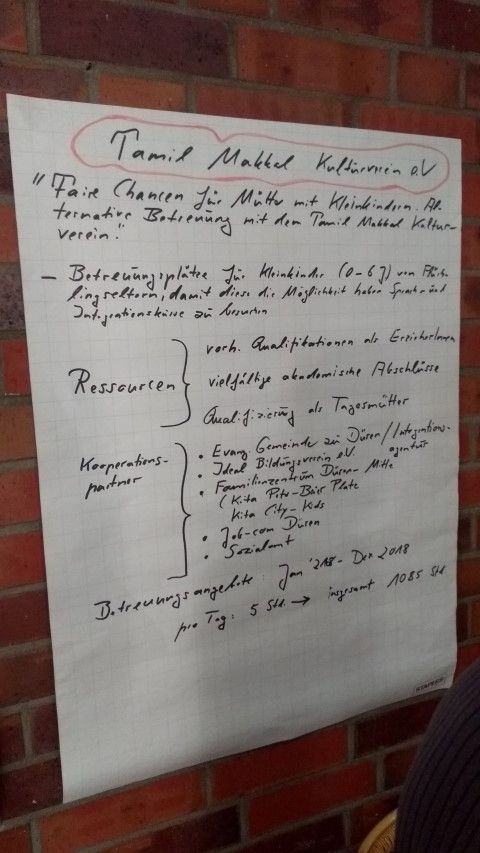 Tamil Makkal Kulturverein e.V
"Faire Chancen für Mütter mit Kleinkindern. Al-
ternative Betreuung mit dem Tamil Makkal Kultur-
verein."
- Betreuungsplätze für Kleinkinder (0-6 J) von Flücht-
lingseltern, damit diese die Möglichkeit haben Sprach- und
Integrationskurse zu besuchen
Ressourcen
vorh. Qualifikationen als ErzieherInnen
vielfältige akademische Abschlüsse
Qualifizierung als Tagesmütter
Kooperations-
partner
• Evang. Gemeinde zu Düren/Integrations-
agentur
• Ideal Bildungsverein e.V.
• Familienzentrum Düren-Mitte
(Kita Peter-Beier Platz
Kita City-Kids
• Job-com Düren
• Sozialamt
Betreuungsangebote: Jan - Dez 2018
pro Tag: 5 Std. → insgesamt 1085 Std
STAPLES